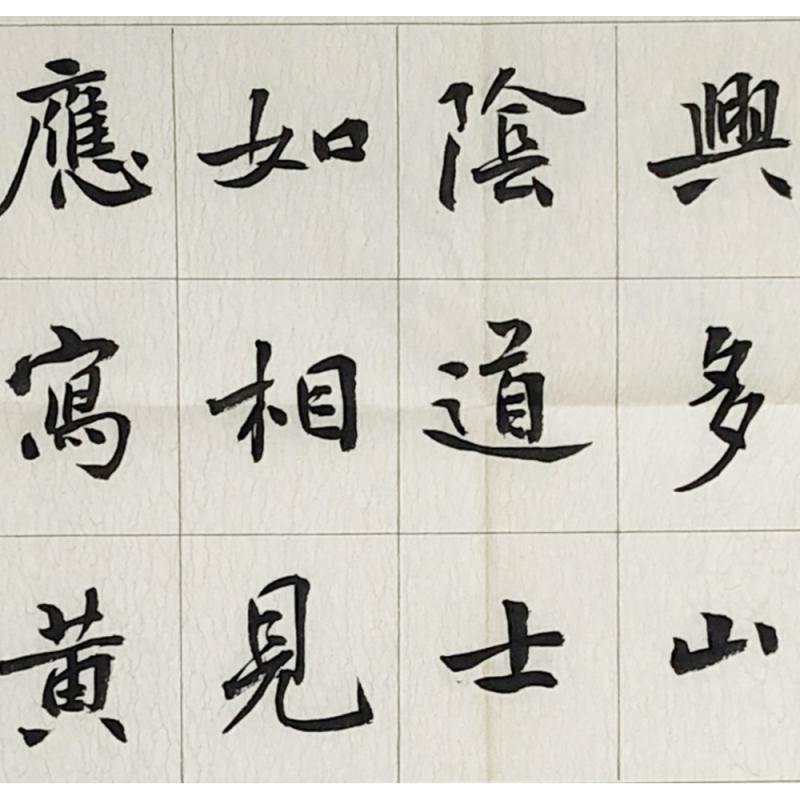 興多山
陰道士
如相見
應寫黃